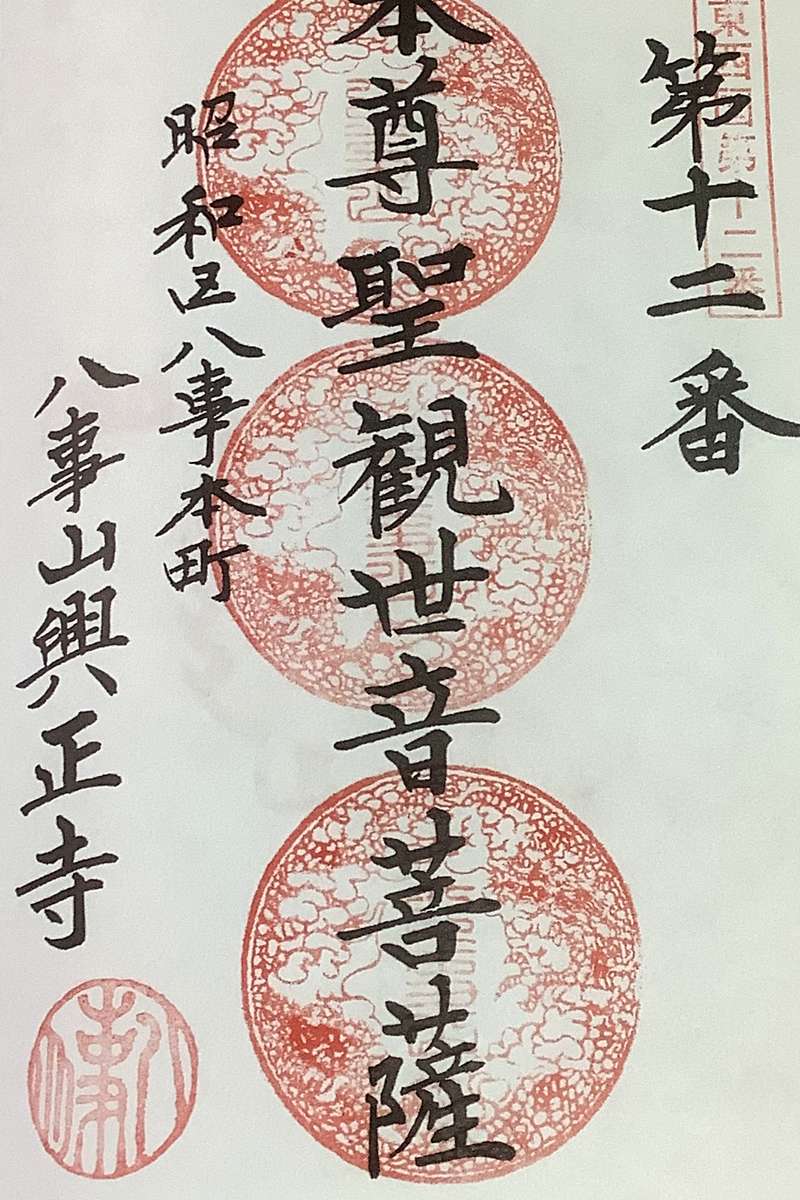 東西国第十二番
第十二番
本尊聖観世音菩薩
昭和区八事本町
八事山興正寺